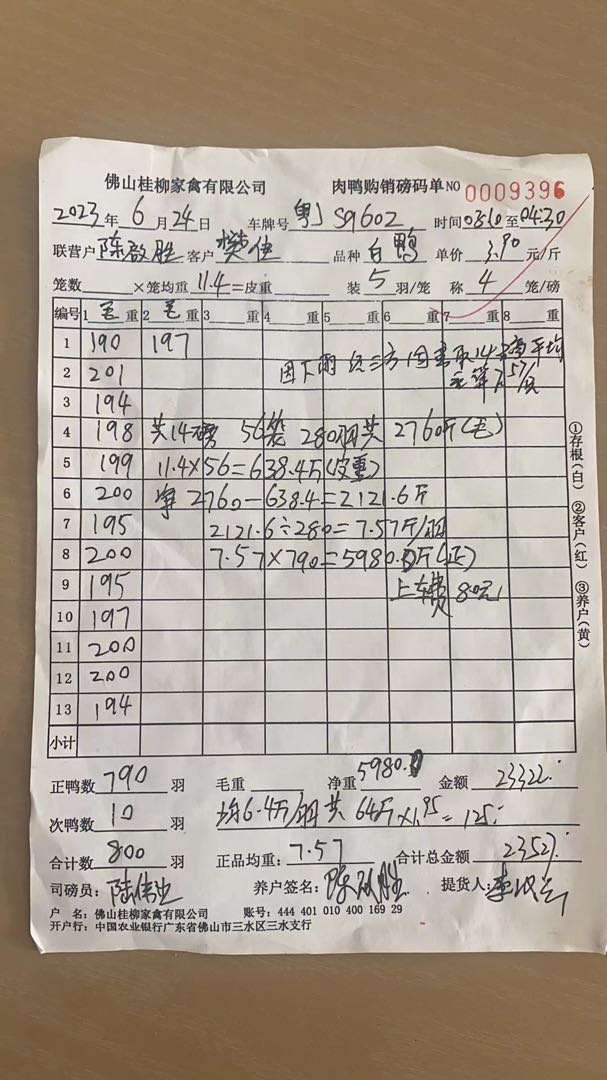 佛山桂柳家禽有限公司 肉鸭购销磅码单 NO 0009396
2023年 6月 24日 车牌号 粤J S9602 时间 03:10 至 04:30
联营户 陈啟胜 客户 樊佳 品种 白鸭 单价 3.90 元/斤
笼数 ×笼均重 11.4 =皮重 装 5 羽/笼 称 4 笼/磅
编号 1 毛 重 2 毛 重 3 重 4 重 5 重 6 重 7 重 8 重
1 190 197
因下雨 三方 14 平均
2 201 7.57/
3 194
4 198 共14磅 56笼 280羽共 2760斤(毛)
5 199 11.4×56=638.4斤(皮重)
6 200 净 2760-638.4=2121.6斤
7 195 2121.6÷280=7.57斤/羽
8 200 7.57×790=5980.0斤(正)
9 195 上车费 80元
10 197
11 200
12 200
13 194
小计
①存根(白) ②客户(红) ③养户(黄)
正鸭数 790 羽 毛重 净重 5980.0 金额 23322.
次鸭数 10 羽 均6.4斤/羽共 64斤×1.95=125.
合计数 800 羽 正品均重: 7.57 合计总金额 23527.
司磅员: 养户签名: 陈啟胜 提货人:
户 名: 佛山桂柳家禽有限公司 账号: 444 401 010 400 169 29
开户行: 中国农业银行广东省佛山市三水区三水支行